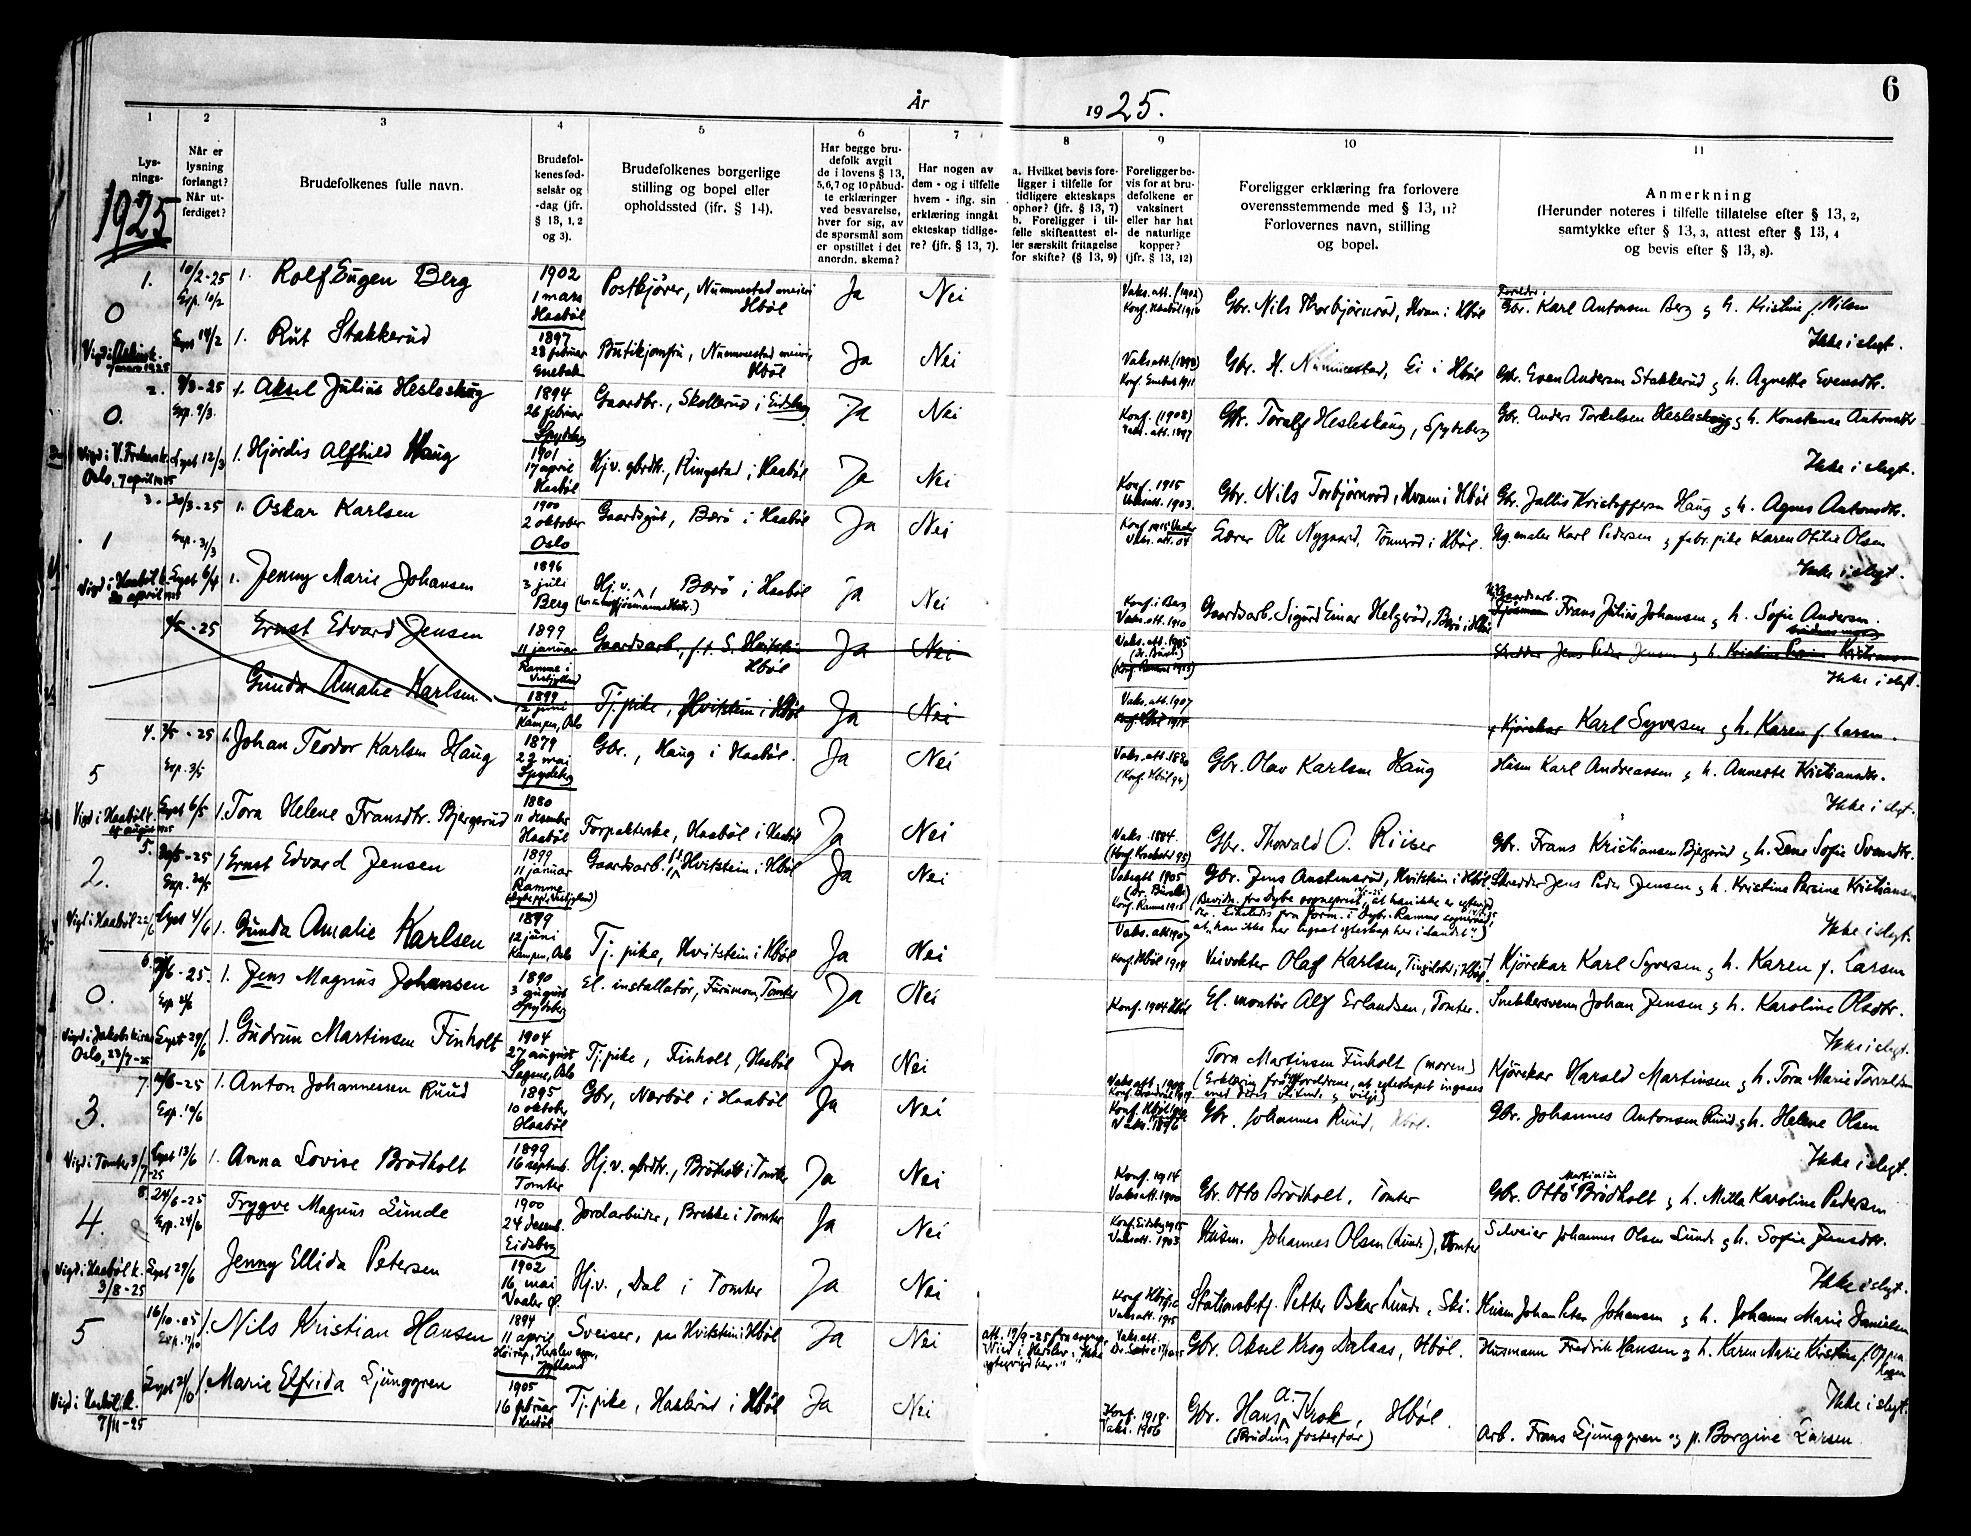 6
År 1925.
1
2
3
4
5
6
7
8
9
10
11
Lys-
nings-
1925
Når er
lysning
forlangt?
Når ut-
ferdiget?
Brudefolkenes fulle navn.
Brudefol-
kenes fød-
selsår og
-dag (jfr.
§ 13, 1, 2
og 3).
Brudefolkenes borgerlige
stilling og bopel eller
opholdssted (ifr. § 14).
Har begge bru-
defolk avgit
de i lovens § 13,
5,6,7 og 10 påbud-
te erklæringer
ved besvarelse,
hver for sig, av
de spørsmål som
er opstillet i det
anordn. skema?
Har nogen av
dem - og i tilfelle
hvem - iflg. sin
erklæring inngått
ekteskap tidlige-
re? (jfr. § 13, 7).
a. Hvilket bevis fore-
ligger i tilfelle for
tidligere ekteskaps
ophør? (jfr. § 13, 7)
b. Foreligger i til-
felle skifteattest el-
ler særskilt fritagelse
for skifte? (§ 13, 9)
Foreligger be-
vis for at bru-
defolkene er
vaksinert
eller har hat
de naturlige
kopper?
(jfr. § 13, 12)
Foreligger erklæring fra forlovere
overensstemmende med § 13, 11?
Forlovernes navn, stilling
og bopel.
Anmerkning
(Herunder noteres i tilfelle tillatelse efter § 13, 2,
samtykke efter § 13, 3, attest efter § 13, 4
og bevis efter § 13, 8).
1. 10/2-25 1. Rolf Eugen Berg 1902 Postkjører, Nummestad meieri Ja Nei Vaks. att. (1902) Gbr. Nils Thorbjørnrød, Hvam i Hbøl Gbr. Karl Antonsen Berg g h. Kristine f. Nilsen
0 Exp. 10/2 1 mars Haabøl Hbøl Konf. Haabøl 1916
Ikke i slegt.
14/2 1. Rut Stakkerud 1897 28 februar Butikjomfru, Nummestad meieri Hbøl Ja Nei Vaks att. (1898) Gbr. H. Nummestad, Ei i Hbøl Gbr. Even Andersen Stakkerud g h. Agnethe Evensdtr.
2. 9/3-25 1. Aksel Julius Hesleskaug 1894 Gaardbr., Skollerud i Eidsberg Ja Nei Konf. (1908) Gbr. Toralf Hesleskaug, Spydeberg Gbr. Anders Torkelsen Hesleskaug g h. Konstanse Antonsdtr
0. Exp. 9/3. 26 februar Spydeberg Vaks. att. 1897
Ikke i slegt.
12/3 1. Hjørdis Alfhild Haug 1901 17 april Haabøl Hj.v. gbrdtr., Ringstad i Haabøl Ja Nei Konf. 1915 Gbr. Nils Torbjørnrød, Hvam i Hbøl Gbr. Jallis Kristoffersen Haug g h. Agnes Antonsdtr.
Oslo, 7 april 1925 Vaks att. 1903.
3. 20/3-25 1. Oskar Karlsen 1900 Gaardsgut, Bærø i Haabøl Ja Nei Lærer Ole Nygaard, Tømmerød i Hbøl. Karl Pedersen g fabr. pike Karen Otilie Olsen
1 Exp. 31/3 2 oktober Oslo Vaks. att. 04
Ikke i slegt.
Vigd i Haabøl k. 20 april 1925 6/4 1. Jenny Marie Johansen 1896 3 juli Berg Hj.v., Bærø i Haabøl Ja Nei Konf. i Berg Vaks. att. 1910 Gaardsarb. Sigurd Einar Helgerød, Bærø i Hbøl Frans Julius Johansen g h. Sofie Andersen.
-25 Ernst Edvard Jensen 1899 11 januar Gaardsarb., f.t. S. Hvitstein Hbøl Ja Nei Vaks. att. 1905 Skredder Jens Peder Jensen g h. Kristine Kristiansen
Ikke i slegt.
Gunda Amalie Karlsen 1899 12 juni Kampen, Oslo Tj. pike, Hvitstein i Hbøl Ja Nei Vaks. att. 1907 Konf. Hbøl 1914 Kjørekar Karl Syversen g h. Karen f. Larsen.
4. 3/5-25 1. Johan Teodor Karlsen Haug 1879 Gbr., Haug i Haabøl. Ja Nei Vaks. att. 1880 Gbr. Olav Karlsen Haug Husm Karl Andreassen g h. Annette Kristiansdtr.
5 Exp. 3/5 23 mai Spydeberg (Konf. Hbøl 94)
Ikke i slegt.
Vigd i Haabøl k. 6/5 1. Tora Helene Fransdtr. Bjergerud 1880 11 desember Haabøl Forpakterske, Haabøl i Haabøl Ja Nei Vaks. 1884. Gbr. Thorvald O. Riiser Gbr. Frans Kristiansen Bjergerud g h. Lene Sofie Svendsdtr.
5. 20/5-25 1. Ernst Edvard Jensen 1899 11 januar Ramme Gaardsarb. Hvitstein i Hbøl Ja Nei Vaks att 1905 Gbr. Jens Anstensrud, Hvitstein i Hbøl Skredder Jens Peder Jensen g h. Kristine Kristiansen
2. Konf. Ramme 1915
Ikke i slegt.
Vigd i Haabøl 22/6 4/6 1. Gunda Amalie Karlsen 1899 12 juni Kampen, Oslo Tj. pike, Hvitstein i Hbøl Ja Nei Vaks. att 1907 Konf. Hbøl 1914 Veivokter Olaf Karlsen, Hbøl Kjørekar Karl Syversen g h. Karen f. Larsen
6. /6-25. 1. Jens Magnus Johansen 1890 3 august Spydeberg El. installatør, Furumom, Tomter Ja Nei Konf. 1904 Hbøl El. montør Alf Erlandsen, Tomter. Snekkersvenn Johan Jensen g h. Karoline Olsdtr.
0.
Ikke i slegt.
Vigd i Jakobs kirke Oslo, 23/7-25 29/6 1. Gudrun Martinsen Finholt 1904 27 august Sagene, Oslo Tj. pike, Finholt, Haabøl Ja Nei Tora Martinsen Finholt (moren) Kjørekar Harald Martinsen g h. Tora Marie Torvaldsen
7. /6-25 1. Anton Johannessen Ruud 1895 10 oktober Haabøl Gbr, Nærbøl i Haabøl Ja Nei Vaks. 1896 Gbr. Johannes Ruud, Hbøl. Gbr. Johannes Antonsen Ruud g h. Helene Olsen
3. Exp. 10/6
Ikke i slegt.
Vigd i Tomter 3/7-25 13/6 1. Anna Lovise Brødholt 1899 16 septemb. Tomter Hj.v. gbrdtr., Brødholt i Tomter Ja Nei Konf. 1914 Vaks att. 1900 Gbr. Otto Brødholt, Tomter Gbr. Otto Martinius Brødholt g h. Milla Karoline Pedersen
8. 24/6-25 Trygve Magnus Lunde 1900 24 desemb. Eidsberg Jordarbeider, Brekke i Tomter Ja Nei Konf. Eidsberg 1915 Vaks att. 1903 Husm. Johannes Olsen (Lunde), Tomter Selveier Johannes Olsen Lunde g h. Sofie Jensdtr.
4. Exp. 24/6
Ikke i slegt.
Vigd i Haabøl k. 3/8-25 29/6 Jenny Ellida Petersen 1902 16 mai Vaaler Hj.v., Dal i Tomter Ja Nei Vaks att. 1915 Stationsbetj. Petter Oskar Lunde, Ski. Husm Johan Peter Johansen g h. Johanne Marie Danielsen
16/10-25 1. Nils Kristian Hansen 1894 11 april Jylland Sveiser, paa Hvitstein i Hbøl Ja Nei Vaks att. Gbr. Aksel Krog Dalaas, Hbøl. Husmann Fredrik Hansen g h. Karen Marie Kristine f.
5 Exp. 17/10
Ikke i slegt.
Vigd i Haabøl k. 7/11-25 21/10 1. Marie Elfrida Ljunggren 1905 16 februar Haabøl Tj. pike, Haabøl i Hbøl Ja Nei Konf. 1919. Vaks. 1906 Gbr. Hans A. Krok, Hbøl. (Brudens fosterfar) Arb. Frans Ljunggren og p. Borgine Larsen